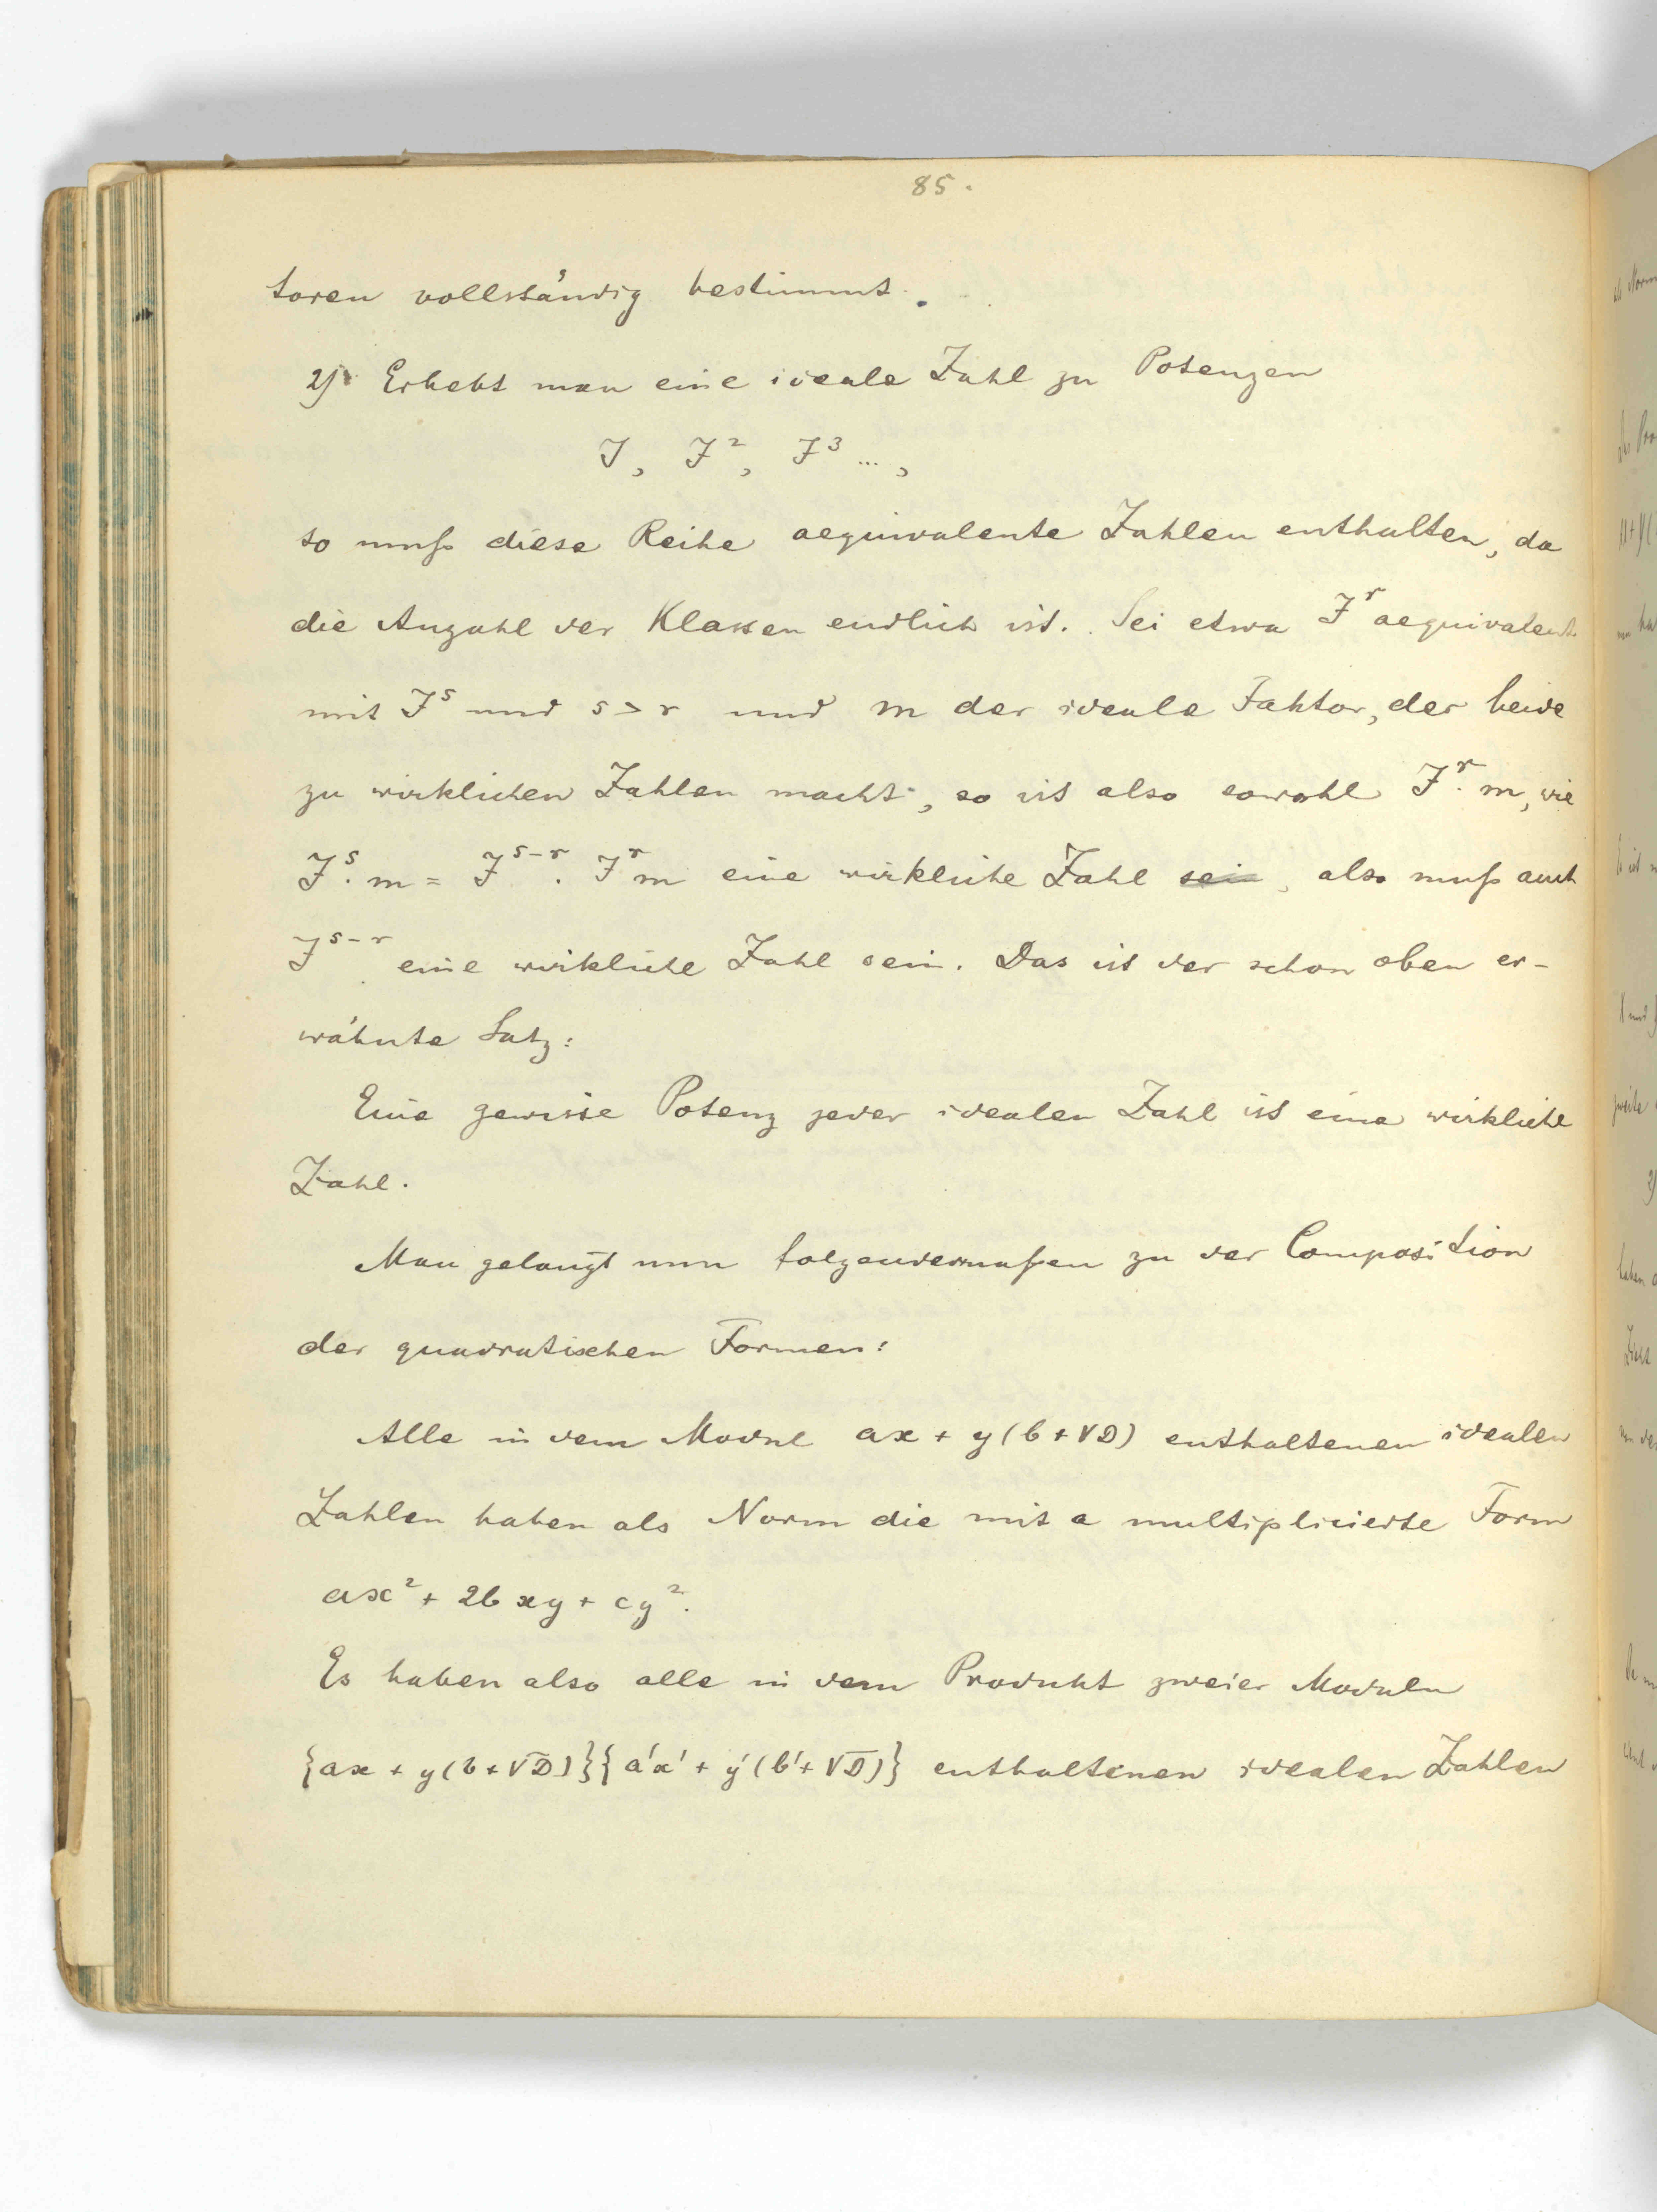 85.
toren vollständig bestimmt.
2) Erhebt man eine ideale Zahl zu Potenzen
J, J², J³ ...,
so muß diese Reihe aequivalente Zahlen enthalten, da
die Anzahl der Klassen endlich ist. Sei etwa J^r aequivalent
mit J^s und s > r und m der ideale Faktor, der beide
zu wirklichen Zahlen macht, so ist also sowohl J^r. m, wie
J^s. m = J^{s-r}. J^r m eine wirkliche Zahl ~~sein~~, also muß auch
J^{s-r} eine wirkliche Zahl sein. Das ist der schon oben er-
wähnte Satz:
Eine gewisse Potenz jeder idealen Zahl ist eine wirkliche
Zahl.
Man gelangt nun folgendermaßen zu der Composition
der quadratischen Formen:
Alle in dem Modul ax + y(b + √D) enthaltenen idealen
Zahlen haben als Norm die mit a multiplicierte Form
ax² + 2bxy + cy².
Es haben also alle in dem Produkt zweier Moduln
{ax + y(b + √D)}{a'x' + y'(b' + √D)} enthaltenen idealen Zahlen